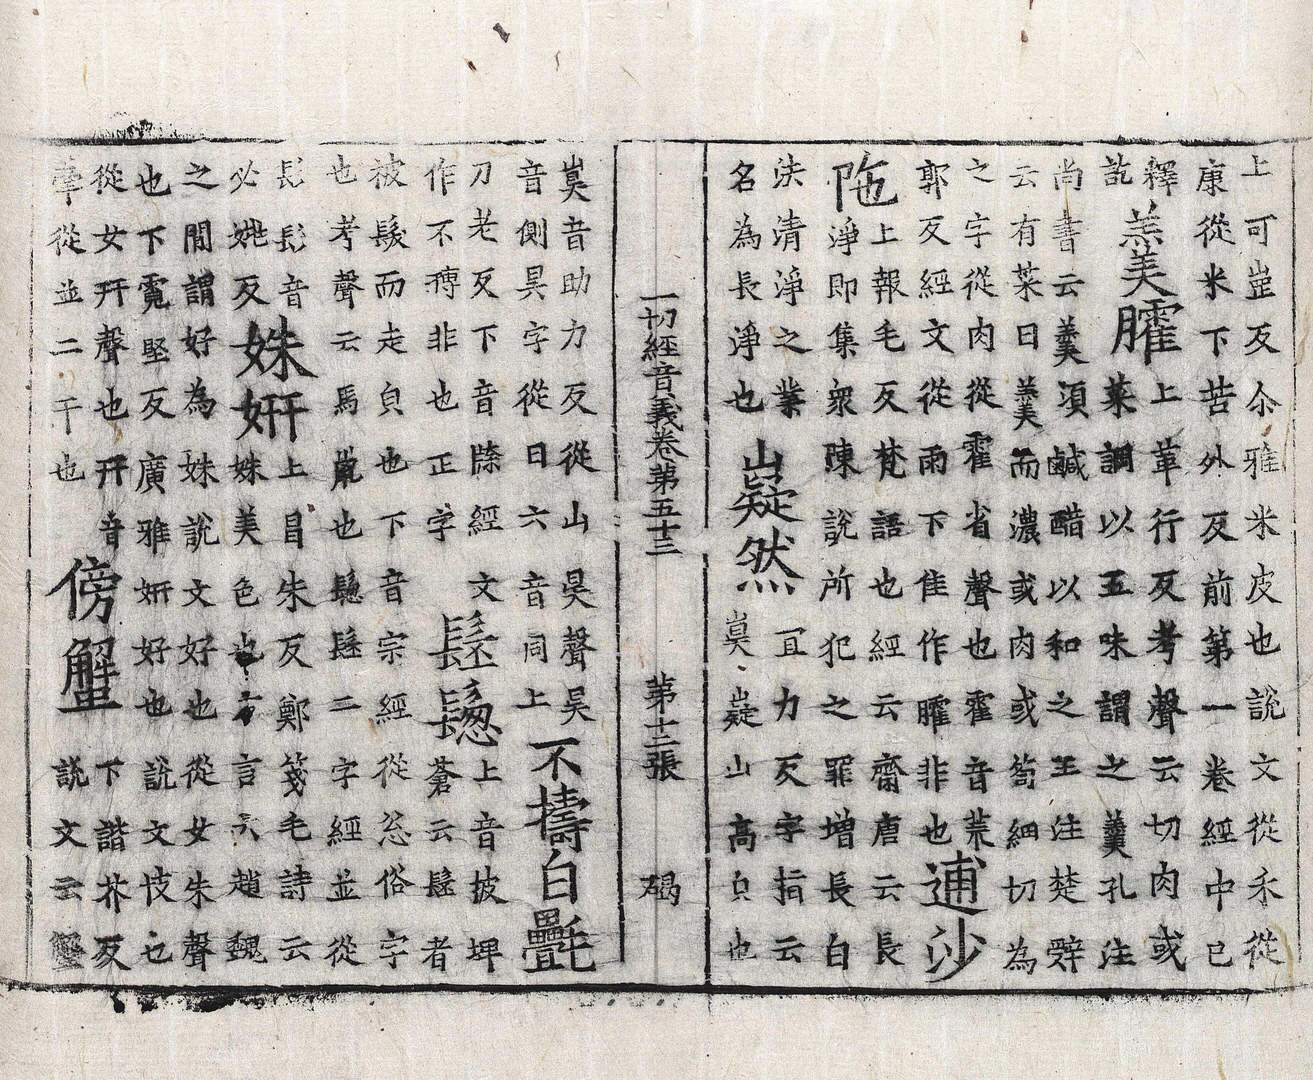 上可豈反尒雅米皮也說文從禾從
康從米下苦外反前第一卷經中已
釋訖
羹臛上革行反考聲云切肉或
菜調以五味謂之羹孔注
尚書云羹須鹹醋以和之王注楚辭
云有菜曰羹而濃或肉或筍細切為
之字從肉從霍省聲也霍音荒
郭反經文從雨下隹作臛非也逋沙
陁上報毛反梵語也經云齋唐云長
淨即集衆陳說所犯之罪增長白
法清淨之業
名為長淨也
㠜然冝力反字指云
㠜山高皃也
音助力反從山昊聲昊
音側昃字從日六音同上不擣白㲲
刀老反下音牒經文
作不䏂非也正字
髬鬆上音披埤
蒼云髬者
被髮而走皃也下音宗經從忩俗字
也考聲云馬鬛也鬆髬二字經並從
髟髟音
必姚反
姝姸上昌朱反鄭箋毛詩云
姝美色也方言云趙魏
之間謂好為姝說文好也從女朱聲
也下霓堅反廣雅姸好也說文忮也
從女幵聲也幵音
牽從並二干也
傍蟹下諧芥反
說文云蟹
一切經音義卷第五十三 第十二張 碣